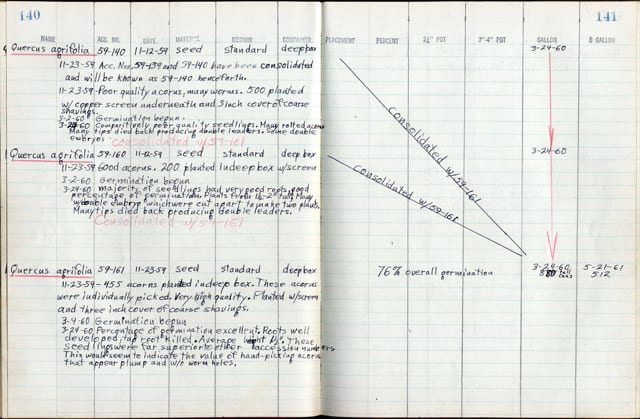 140
141
NAME ACC. NO. DATE MATER'L MEDIUM CONTAINER PLACEMENT PERCENT 2½" POT 3"-4" POT GALLON 5 GALLON
Quercus agrifolia 59-140 11-12-59 seed standard deepbox 3-24-60
11-23-59 Acc. Nos. 59-139 and 59-140 have been consolidated
and will be known as 59-140 henceforth.
11-23-59 Poor quality acorns, many worms. 500 planted
w/ copper screen underneath and 3 inch cover of coarse
shavings.
3-2-60 Germination begun.
3-24-60 Comparitively poor quality seedlings. Many rotted acorns
Many tips died back producing double leaders. Some double
embryos.
Consolidated w/59-161
Quercus agrifolia 59-160 11-12-59 seed standard deep box 3-24-60
11-23-59 Good acorns. 200 planted in deep box w/screen
3-2-60 Germination begun
3-24-60 majority of seedlings had very good roots, good
percentage of germination. Plants from 1½-2" tall. Many
w/double embryo which were cut apart to make two plants.
Many tips died back producing double leaders.
Consolidated w/59-161
Consolidated w/59-161
Consolidated w/59-161
Quercus agrifolia 59-161 11-23-59 seed standard deepbox 76% overall germination 3-24-60 5-21-61
880 Tall Cans 512
11-23-59 - 455 acorns planted in deep box. These acorns
were individually picked. Very high quality. Planted w/screen
and three inch cover of coarse shavings.
3-4-60 Germination begun
3-24-60 Percentage of germination excellent. Roots well
developed, tap root killed. Average These
seedlings were far superior to other accession numbers
This would seem to indicate the value of hand-picking acorns
that appear plump and w/o worm holes.